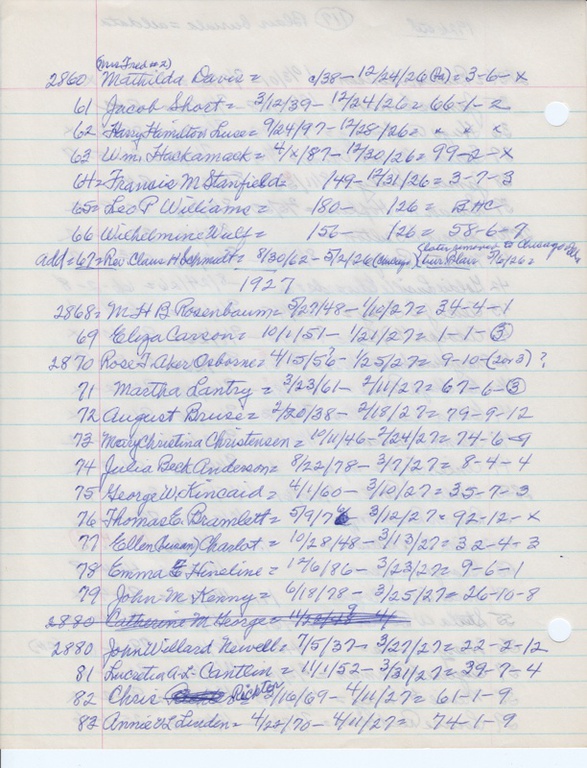 (Mrs Fred #2)
2860 Mathilda Davis = c/38 - 12/24/26 (Pa) = 3-6-x
61 Jacob Short = 3/12/39 - 12/24/26 = 66-1-2
62 Harry Hamilton Luse = 9/24/97 - 12/28/26 = x x x
63 Wm. Hackamack = 4/x/87 - 12/30/26 = 99-2-x
64 = Francis M Stanfield = 149 - 12/31/26 = 3-7-3
65 = Leo P Williams = 180 - 126 = BHC
66 Wilhelmine Wulf = 156 - 126 = 58-6-9
add = 67 = Rev. Claus H Schmidt = 8/30/62 - 5/2/26 (Chicago) (later removed to Chicago
Blair 5/6/26 =
1927
2868 = M H B Rosenbaum = 5/27/48 - 1/10/27 = 34-4-1
69 Eliza Carson = 10/1/51 - 1/21/27 = 1-1-3
2870 Rose F Aker Osborne = 4/15/56 - 1/25/27 = 9-10-(2 or 3) ?
71 Martha Lantry = 3/23/61 - 2/11/27 = 67-6-3
72 August Bruse = 2/20/38 - 2/18/27 = 79-9-12
73 Mary Christina Christensen = 10/11/46 - 2/24/27 = 74-6-9
74 Julia Beck Anderson = 8/22/78 - 3/7/27 = 8-4-4
75 George W. Kincaid = 4/1/60 - 3/10/27 = 35-7-3
76 Thomas E. Bramlett = 5/9/76 3/12/27 = 92-12-x
77 Ellen (Susan) Charlot = 10/28/48 - 3/13/27 = 32-4-3
78 Emma E Hineline = 12/6/86 - 3/23/27 = 9-6-1
79 John M Kenny = 6/18/78 - 3/25/27 = 26-10-8
2880 Catherine M George =
2880 John Willard Newell = 7/5/37 - 3/27/27 = 22-2-12
81 Lucretia A.L. Cantlin = 11/1/52 - 3/31/27 = 39-7-4
82 Chris Richter 2/16/69 - 4/11/27 = 61-1-9
83 Annie L Linden = 4/22/70 - 4/11/27 = 74-1-9